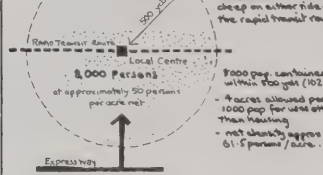 500 yds
deep on either side
the rapid transit rou
Rapid Transit Route
Local Centre
8,000 Persons
at approximately 50 persons
per acre net
Expressway
8000 pop. contained
within 500 yds (162
- 4 acres allowed per
1000 pop for uses oth
than housing
- net density approx
61.5 persons/acre.